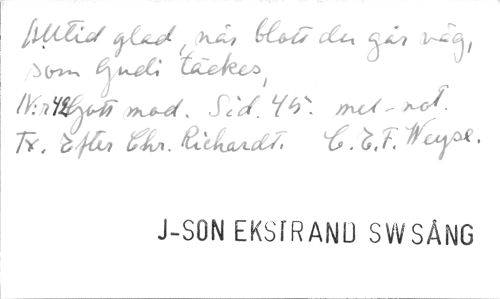 Alltid glad, när blott du går väg,
som Gudi täckes,
N:r 42 Gott mod. Sid. 45. mel-not.
Tx. Efter Chr. Richardt. C.E.F. Weyse.
J-SON EKSTRAND SW SÅNG